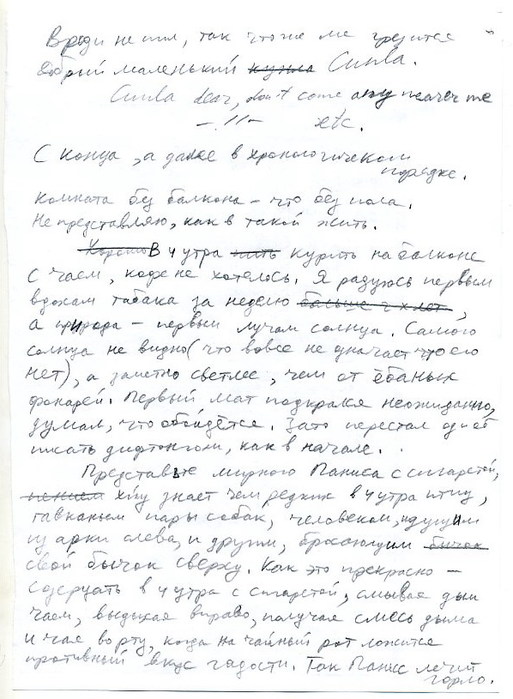 Вроди не пил, так что же мне грезится
добрый маленький кукла Силва.
Силва dear, don't come any nearer me
— 〃 — etc.
С конца, а далее в хронологическом
порядке.
Комната без балкона – что без пола.
Не представляю, как в такой жить.
В 4 утра пить курить на балконе
с чаем, кофе не хотелось. Я радуюсь первым
вдохам табака за неделю больше 2х лет,
а природа – первым лучам солнца. Самого
солнца не видно (что вовсе не означает что его
нет), а заметно светлее, чем от ёбаных
фонарей. Первый мат подкрался неожиданно,
думал, что обойдётся. Зато перестал од её
писать дифтонгом, как в начале.
Представьте мирного Паниса с сигаретой,
пением хуй знает чем редких в 4 утра птиц,
гавканьем пары собак, человеком, идущим
из арки слева, и другим, бросающим бычок
свой бычок сверху. Как это прекрасно –
созерцать в 4 утра с сигаретой, смывая дым
чаем, выдыхая вправо, получая смесь дыма
и чая во рту, когда на чайный рот ложится
противный вкус гадости. Так Панис лечит
горло.